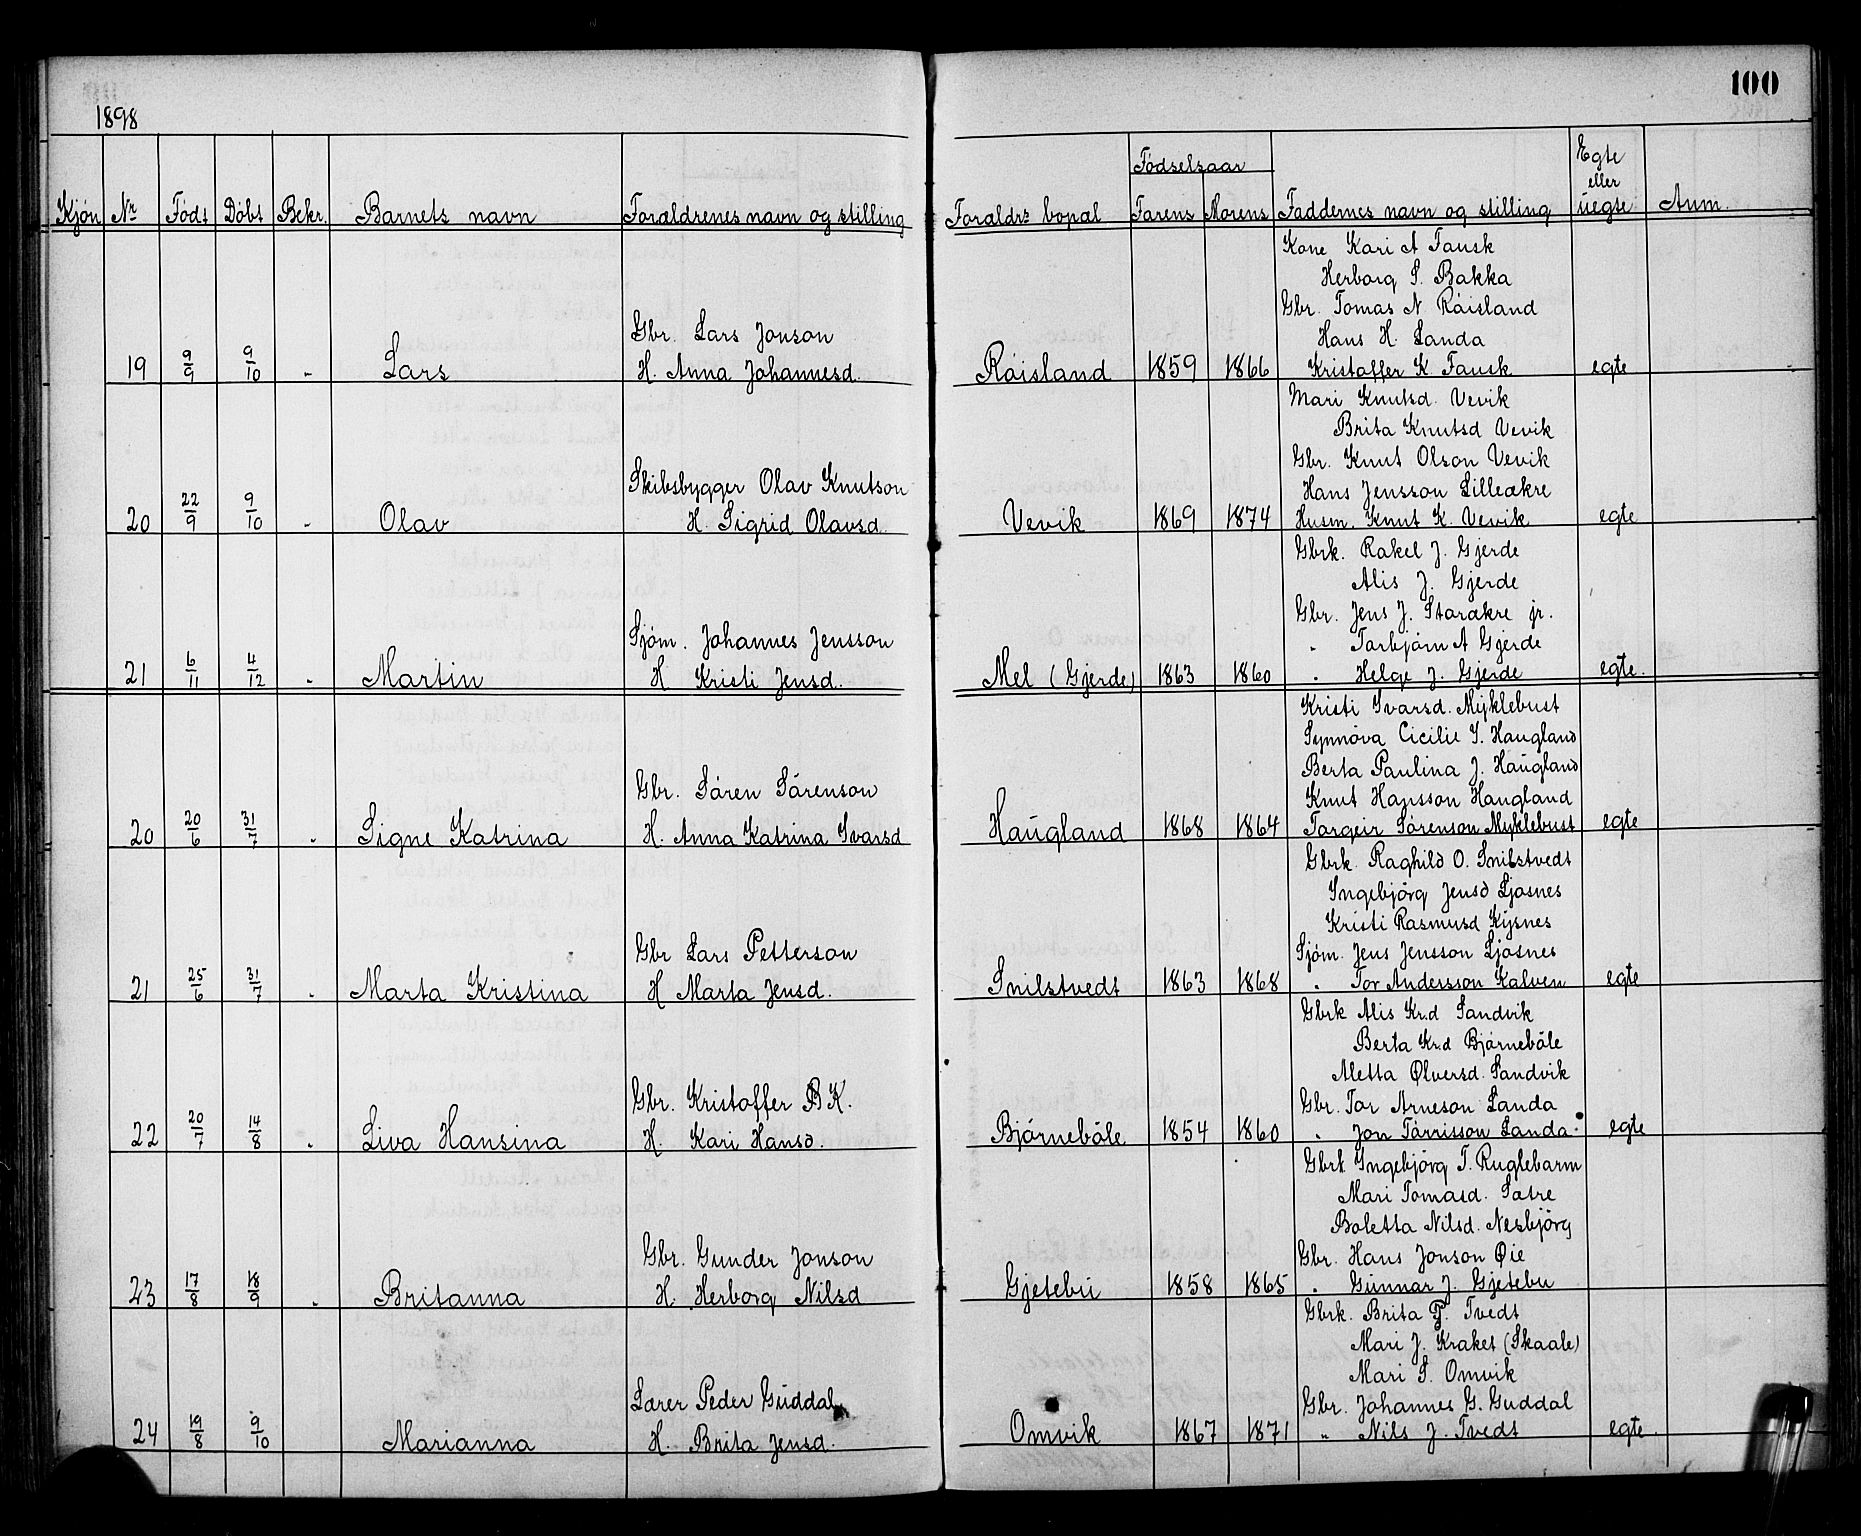 100
1898
Kjön Nr Födt Döbt Bekr. Barnets navn Forældrenes navn og stilling Foraldrs bopal Födselsaar Farens Morens Faddernes navn og stilling Egte eller uegte Anm.
Kone Kari A Fausk
Herborg S. Bakka
Gbr. Tomas N Röisland
Gbr. Lars Jonson Hans H. Landa
19 9/9 9/10 „ Lars H. Anna Johannesd. Röisland 1859 1866 Kristoffer K. Fausk egte
Mari Knutsd. Vevik
Brita Knutsd Vevik
Gbr. Knut Olson Vevik
Skibsbygger Olav Knutson Hans Jensson Lilleakre
20 22/9 9/10 „ Olav H. Sigrid Olavsd. Vevik 1869 1874 Husm. Knut K. Vevik egte
Gbrk. Rakel J. Gjerde
Alis J. Gjerde
Gbr. Jens J. Starakre jr.
Sjöm. Johannes Jensson „ Tarbjörn A Gjerde
21 6/11 4/12 „ Martin H. Kristi Jensd. Mel (Gjerde) 1863 1860 „ Helge J. Gjerde egte.
Kristi Ivarsd. Myklebust
Synnöva Cicilie I. Haugland
Berta Paulina J. Haugland
Gbr. Sören Sörenson Knut Hansson Haugland
20 20/6 31/7 „ Signe Katrina H. Anna Katrina Ivarsd Haugland 1868 1864 Torgeir Sörenson Myklebust egte
Gbrk. Raghild O. Snilstvedt
Ingebjörg Jensd Ljosnes
Kristi Rasmusd Kysnes
Gbr Lars Petterson Sjöm. Jens Jensson Ljosnes
21 25/6 31/7 „ Marta Kristina H Marta Jensd. Snilstvedt 1863 1868 „ Tor Andersson Kalven egte
Gbrk Alis Kr.d Sandvik
Berta Kr.d Björnebôle
Metta Ølversd. Sandvik
Gbr. Kristoffer B K. Gbr. Tor Arneson Landa
22 20/7 14/8 „ Liva Hansina H. Kari Hansd. Björnebôle 1854 1860 „ Jon Törrisson Landa egte
Gbrk Ingebjörg T. Ruglebarm
Mari Tomasd. Satre
Boletta Nilsd. Nesbjörg
Gbr. Gunder Jonson Gbr. Hans Jonson Øie
23 17/8 18/9 „ Britanna H. Herborg Nilsd Gjetebu 1858 1865 „ Gunnar J. Gjetebu
Gbrk. Brita P. Tvedt
Mari J. Kraket (Skaale)
Mari S. Omvik
Larer Peder Guddal Gbr. Johannes G. Guddal
24 19/8 9/10 Marianna H. Brita Jensd. Omvik 1867 1871 „ Nils J. Tvedt egte.